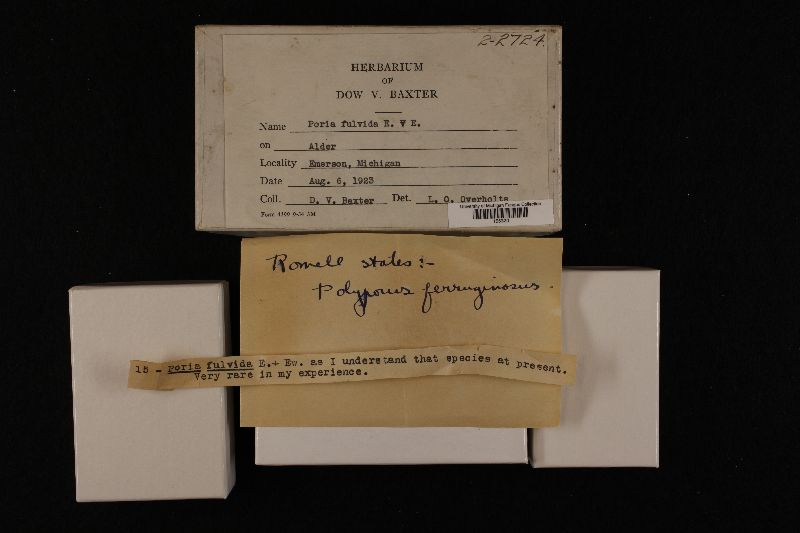 2-2724.
HERBARIUM
OF
DOW V. BAXTER
Name Poria fulvida E. & E.
on Alder
Locality Emerson, Michigan
Date Aug. 6, 1923
Coll. D. V. Baxter Det. L. O. Overholts
University of Michigan Fungus Collection
Romell states:-
Polyporus ferruginosus.
15 - poria fulvida E.+ Ev. as I understand that species at present.
Very rare in my experience.